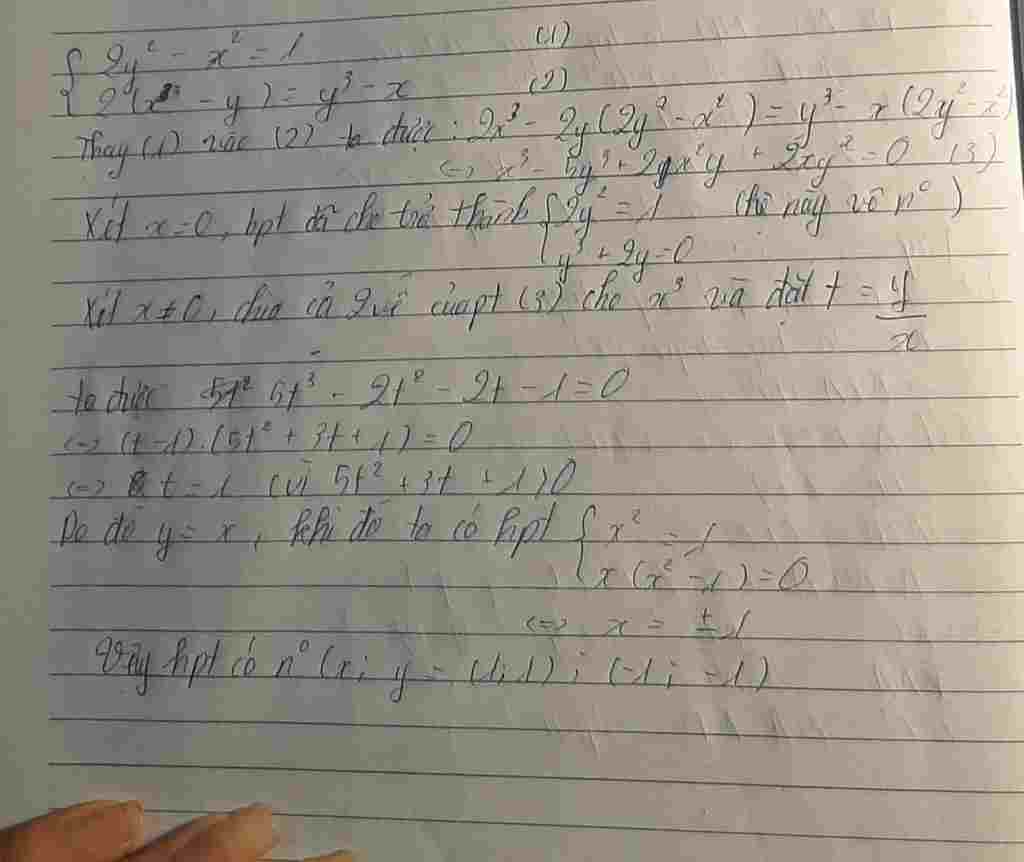 { 2y² - x² = 1 (1)
2(x³ - y) = y³ - x (2)
Thay (1) vào (2) ta được : 2x³ - 2y(2y² - x²) = y³ - x(2y² - x²)
<=> x³ - 5y³ + 2x²y + 2xy² = 0 (3)
Xét x = 0, hpt đã cho trở thành { 2y² = 1 (hệ này vô n⁰)
y³ + 2y = 0
Xét x ≠ 0, chia cả 2 vế của pt (3) cho x³ và đặt t = y/x
ta được 5t³ - 2t² - 2t - 1 = 0
<=> (t - 1).(5t² + 3t + 1) = 0
<=> t = 1 (vì 5t² + 3t + 1 > 0
Do đó y = x, khi đó ta có hpt { x² = 1
x(x² - 1) = 0
<=> x = ± 1
Vậy hpt có n⁰ (x; y = (1; 1) ; (-1; -1)